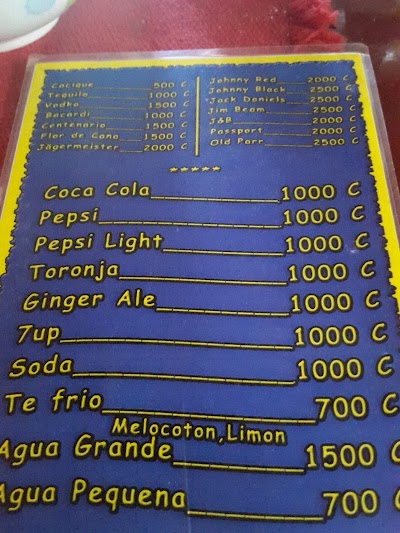 Cacique 500 C
Tequila 1000 C
Vodka 1500 C
Bacardi 1000 C
Centenario 1500 C
Flor de Cana 1500 C
Jägermeister 2000 C
Johnny Red 2000 C
Johnny Black 2500 C
Jack Daniels 2500 C
Jim Beam 2500 C
J&B 2000 C
Passport 2000 C
Old Parr 2500 C
*****
Coca Cola 1000 C
Pepsi 1000 C
Pepsi Light 1000 C
Toronja 1000 C
Ginger Ale 1000 C
7up 1000 C
Soda 1000 C
Te frio 700 C
Melocoton,Limon
Agua Grande 1500 C
Agua Pequena 700 C